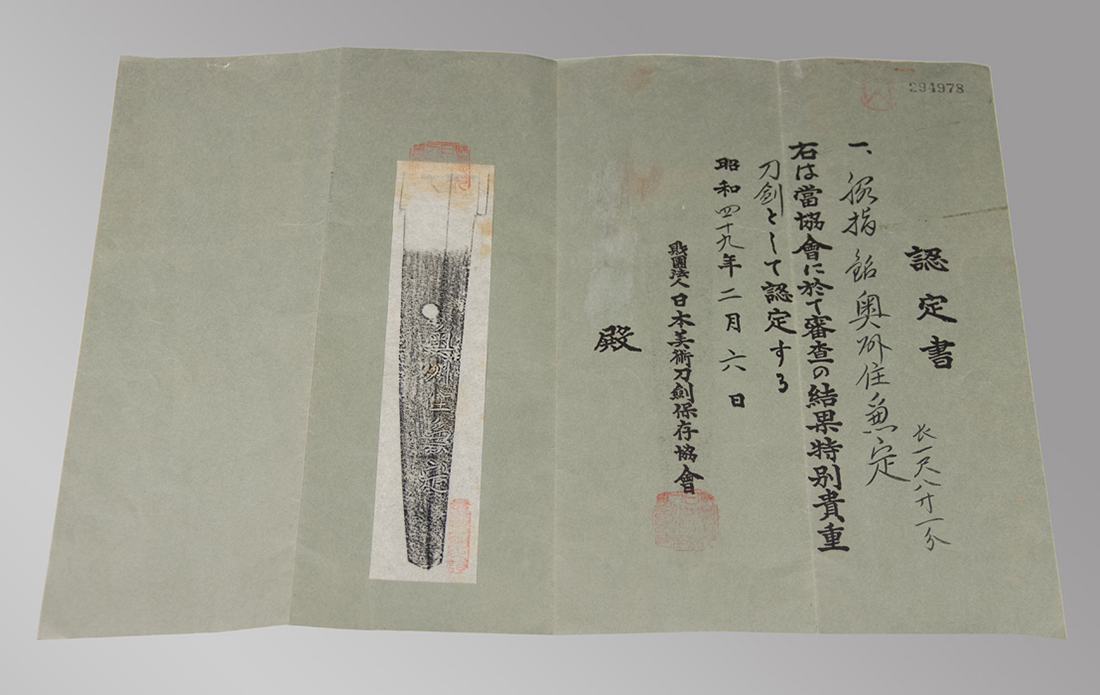 294978
認定書
一、脇指 銘 奥州住兼定
長一尺八寸一分
右は當協會に於て審査の結果特別貴重
刀劍として認定する
昭和四十九年二月六日
財團法人日本美術刀劍保存協會
殿
奥州住兼定